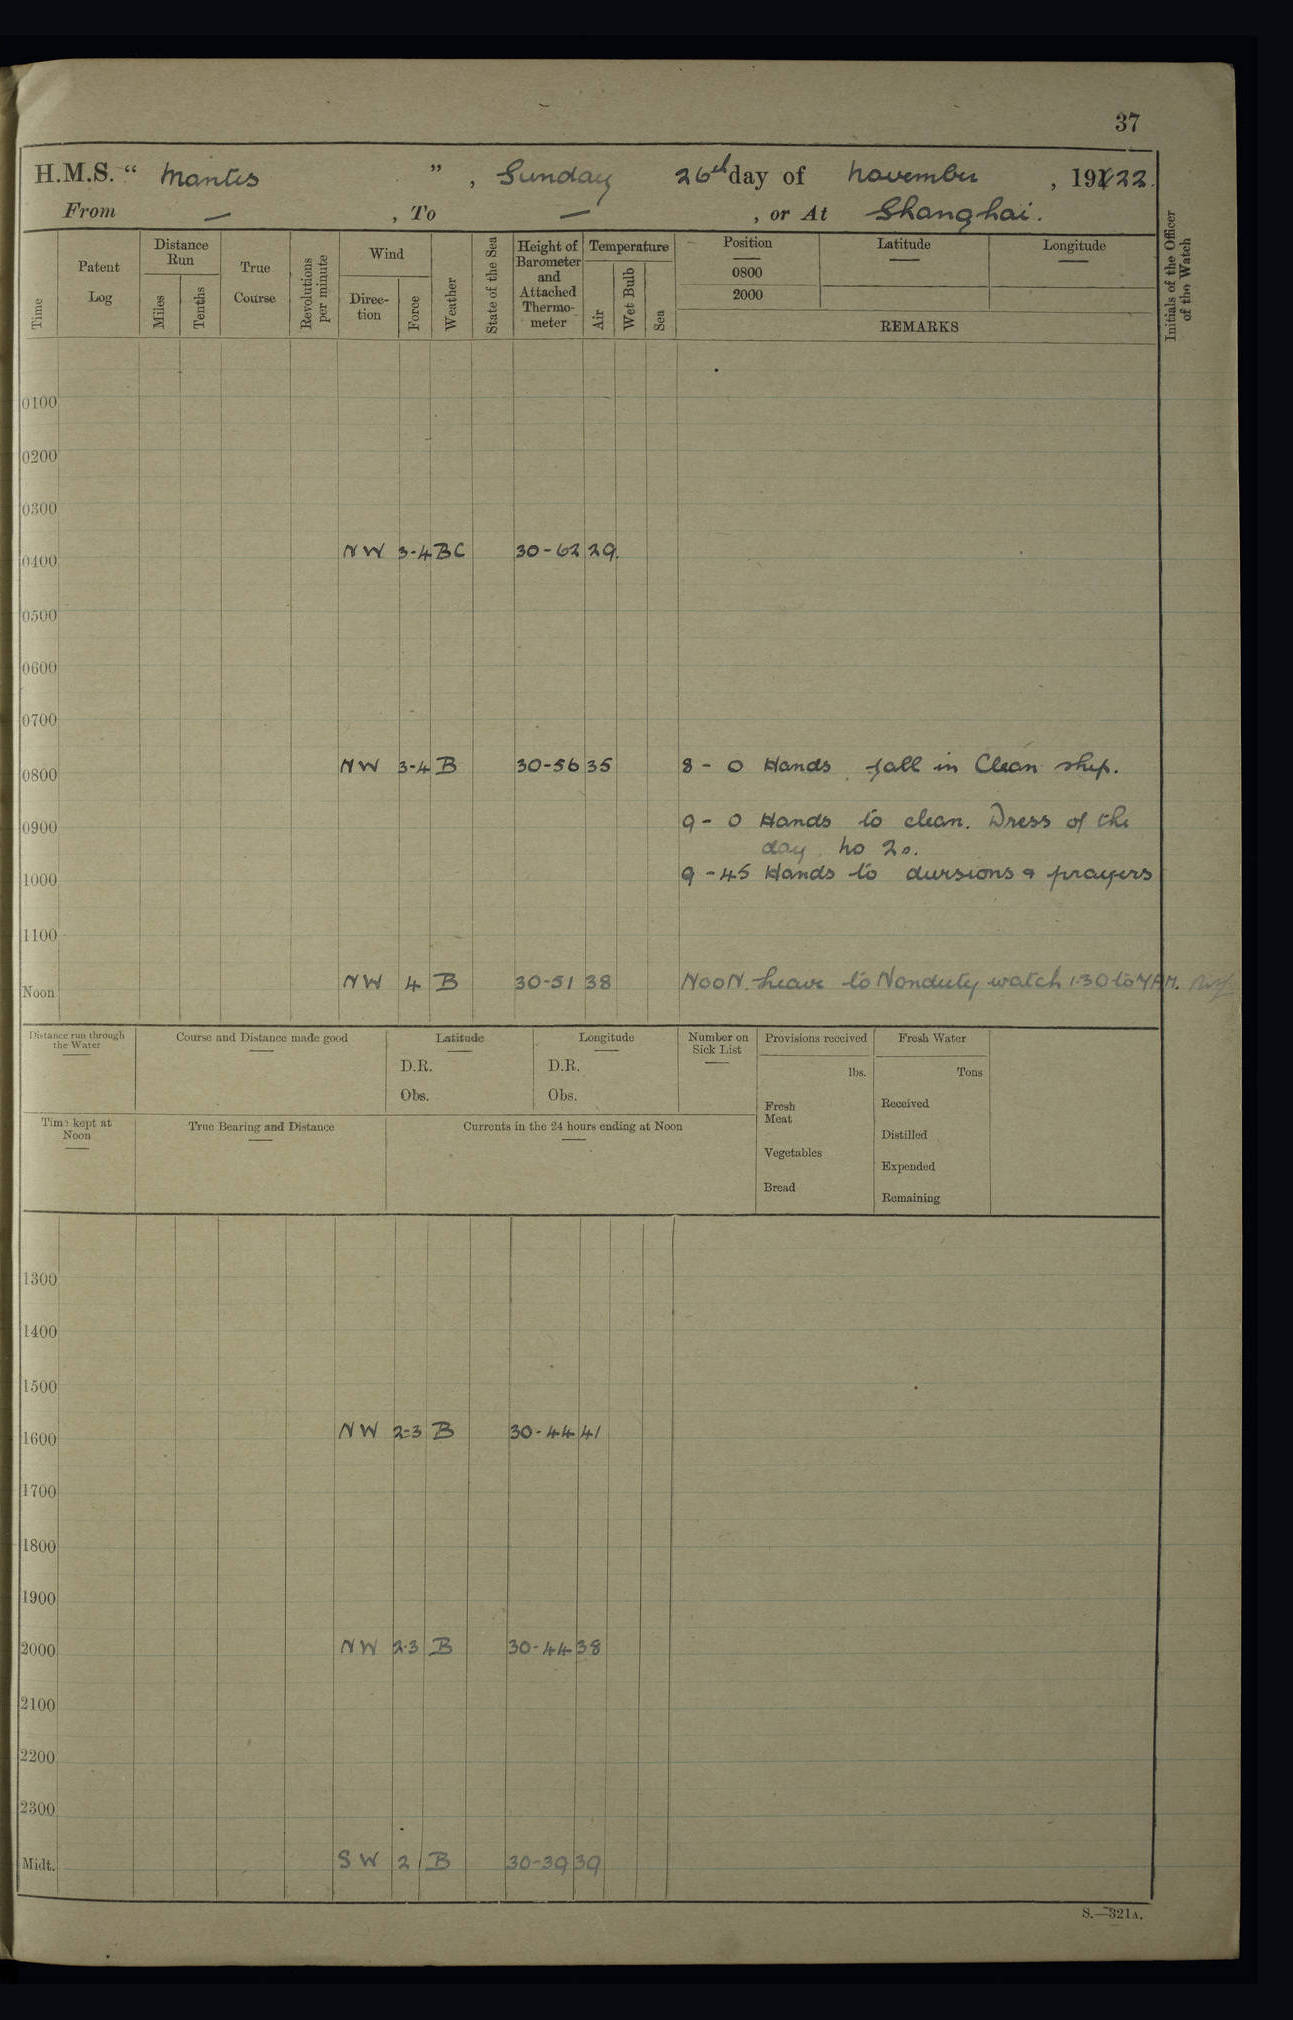 37
H.M.S. “ Mantis ” , Sunday 26th day of November , 1922.
From — , To — , or At Shanghai.
Time
Patent Log
Distance Run
Miles
Tenths
True Course
Revolutions per minute
Wind
Direc-tion
Force
Weather
State of the Sea
Height of Barometer and Attached Thermo-meter
Temperature
Air
Wet Bulb
Sea
Position
0800
2000
Latitude
Longitude
REMARKS
Initials of the Officer of the Watch
0100
0200
0300
0400 NW 3-4 BC 30-62 29.
0500
0600
0700
0800 NW 3-4 B 30-56 35 8 - 0 Hands fall in Clean ship.
0900 9 - 0 Hands to clean. Dress of the
day No 2s.
1000 9 - 45 Hands to divisions & prayers
1100
Noon NW 4 B 30-51 38 NOON. Leave to Nonduty watch 1.30 to 7 AM.
Distance run through the Water
Course and Distance made good
Latitude
D.R.
Obs.
Longitude
D.R.
Obs.
Number on Sick List
Provisions received
lbs.
Fresh Meat
Vegetables
Bread
Fresh Water
Tons
Received
Distilled
Expended
Remaining
Time kept at Noon
True Bearing and Distance
Currents in the 24 hours ending at Noon
1300
1400
1500
1600 NW 2-3 B 30-44 41
1700
1800
1900
2000 NW 2-3 B 30-44 38
2100
2200
2300
Midt. SW 2 B 30-39 39
S.—321A.